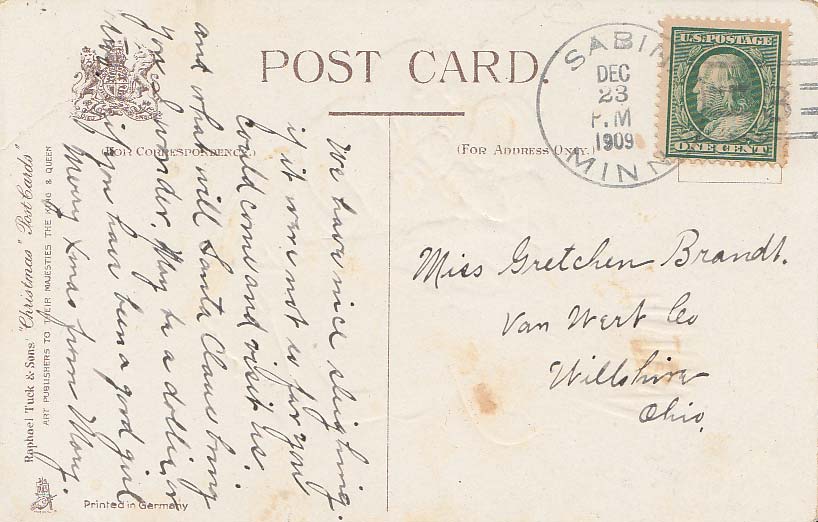 POST CARD.
(FOR CORRESPONDENCE.)
(FOR ADDRESS ONLY.)
SABIN
DEC
23
P.M
1909
MINN
U.S. POSTAGE
ONE CENT
We have nice sleighing.
if it were not so far you
could come and visit us.
and what will Santa Claus bring
you I wonder. May be a dollie or
if you have been a good girl
Merry Xmas from Mary.
Miss Gretchen Brandt.
Van Wert Co
Willshire
Ohio.
Raphael Tuck & Sons' "Christmas" Post Cards"
ART PUBLISHERS TO THEIR MAJESTIES THE KING & QUEEN
Printed in Germany